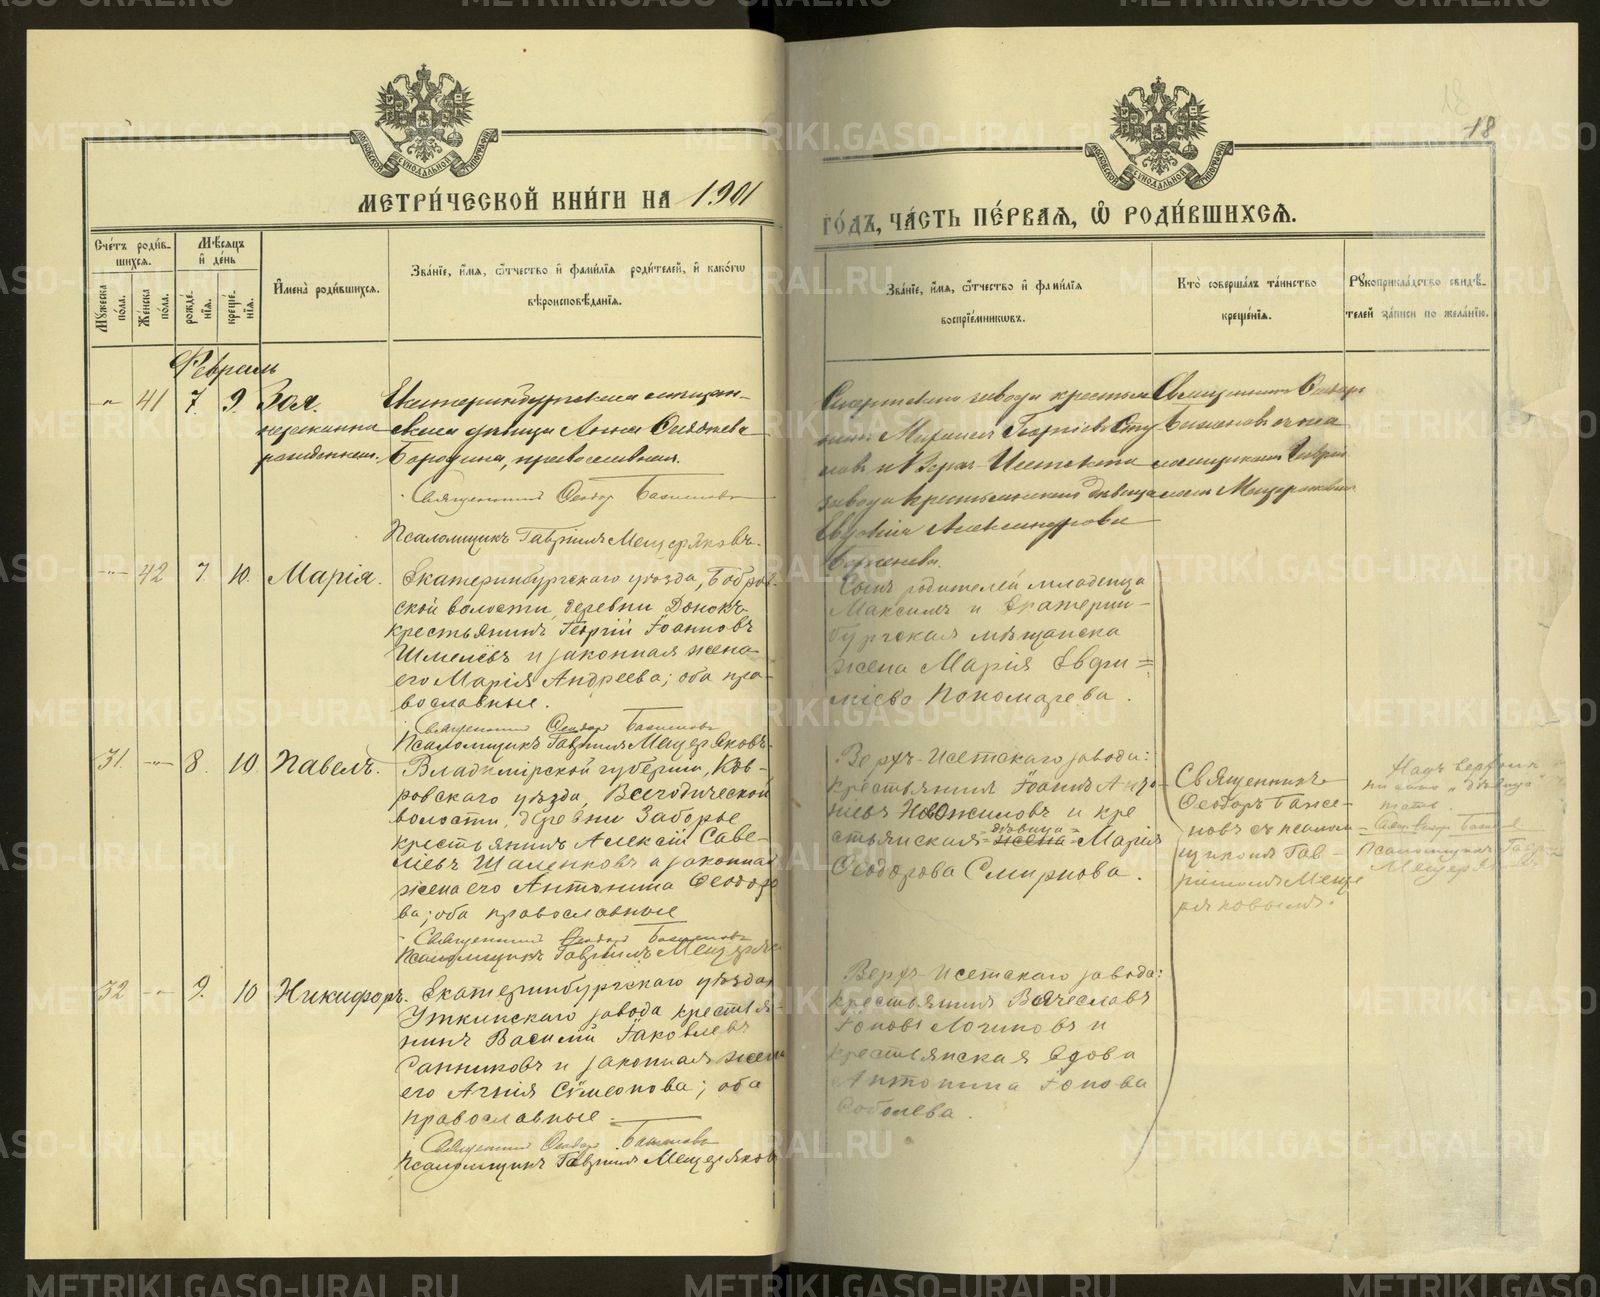 18
МЕТРИ́ЧЕСКОЙ КНИ́ГИ НА 1901
ГО́ДЪ, ЧА́СТЬ ПЕ́РВАѦ, Ѡ҆ РОДИ́ВШИХСѦ.
Сче́тъ роди́в-
шихсѧ.
Му́жеска по́ла.
Же́нска по́ла.
Мѣ́сѧцъ и҆ де́нь
рожде́нїѧ.
креще́нїѧ.
И҆мена̀ роди́вшихсѧ.
Зва́нїе, и҆́мѧ, ѻ҆́тчество и҆ фами́лїѧ роди́телей, и҆ како́гѡ
вѣроисповѣ́данїѧ.
Зва́нїе, и҆́мѧ, ѻ҆́тчество и҆ фами́лїѧ
воспрїе́мникѡвъ.
Кто̀ соверша́лъ та́инство
креще́нїѧ.
Рꙋкоприкла́дство свидѣ́-
телей за́писи по жела́нїю.
Февраль
41 7. 9. Зоя.
незаконно
рожденная.
Екатеринбургская мещан-
ская девица Анна
Бородина, православная.
Священник Феодор Баженов
Псаломщикъ Гавріилъ Мещеряковъ.
завода крестья
нин Михаил Георгиев
лов и Верх-Исетскаго
завода крестьянская девица
Евдокия Александрова
Баженова.
Священник Феодор
Баженов с пса
ломщиком Гаври
илом Мещеряковым
42 7 10. Марія.
Екатеринбургскаго уѣзда, Бобров-
ской волости, деревни
крестьянинъ Георгій Іоанновъ
Шмелёвъ и законная жена
его Марія Андреева; оба пра-
вославные.
Священник Феодор Баженов
Псаломщикъ Гавріилъ Мещеряковъ.
Сынъ родителей младенца
Максимъ и Екатерин-
бургская мѣщанска
жена Марія Евфи=
міева Пономарева.
31. 8. 10. Павелъ.
Владимірской губерніи, Ков-
ровскаго уѣзда, Всегодической
волости, деревни Заборье
крестьянинъ Алексій Саве-
ліевъ Шаленковъ и законная
жена его Антонина Ѳеодоро
ва; оба православные
Священник Феодор Баженов
Псаломщикъ Гавріилъ Мещеряков
Верхъ-Исетскаго завода:
крестьянинъ Іоаннъ
ніевъ Новожиловъ и кре
стьянская дѣвица жена Марія
Ѳеодорова Смирнова.
Священникъ
Ѳеодоръ Баже-
новъ съ псалом
щикомъ Гав-
ріиломъ Меще
ряковымъ.
Надъ
писано "дѣвица"
Свящ. Феодор Баженов
Псаломщикъ Гавр
Мещеряк
32 9. 10 Никифоръ.
Екатеринбургскаго уѣзда
Уткинскаго завода крестья-
нинъ Василій Іаковлевъ
Санниковъ и законная жена
его Агнія Сѵмеонова; оба
православные.
Священник Феодор Баженов
Псаломщикъ Гавріилъ Мещеряков
Верхъ-Исетскаго завода:
крестьянинъ Вячеславъ
Іоновъ Логиновъ и
крестьянская вдова
Антонина Іонова
Соболева.
METRIKI.GASO-URAL.RU